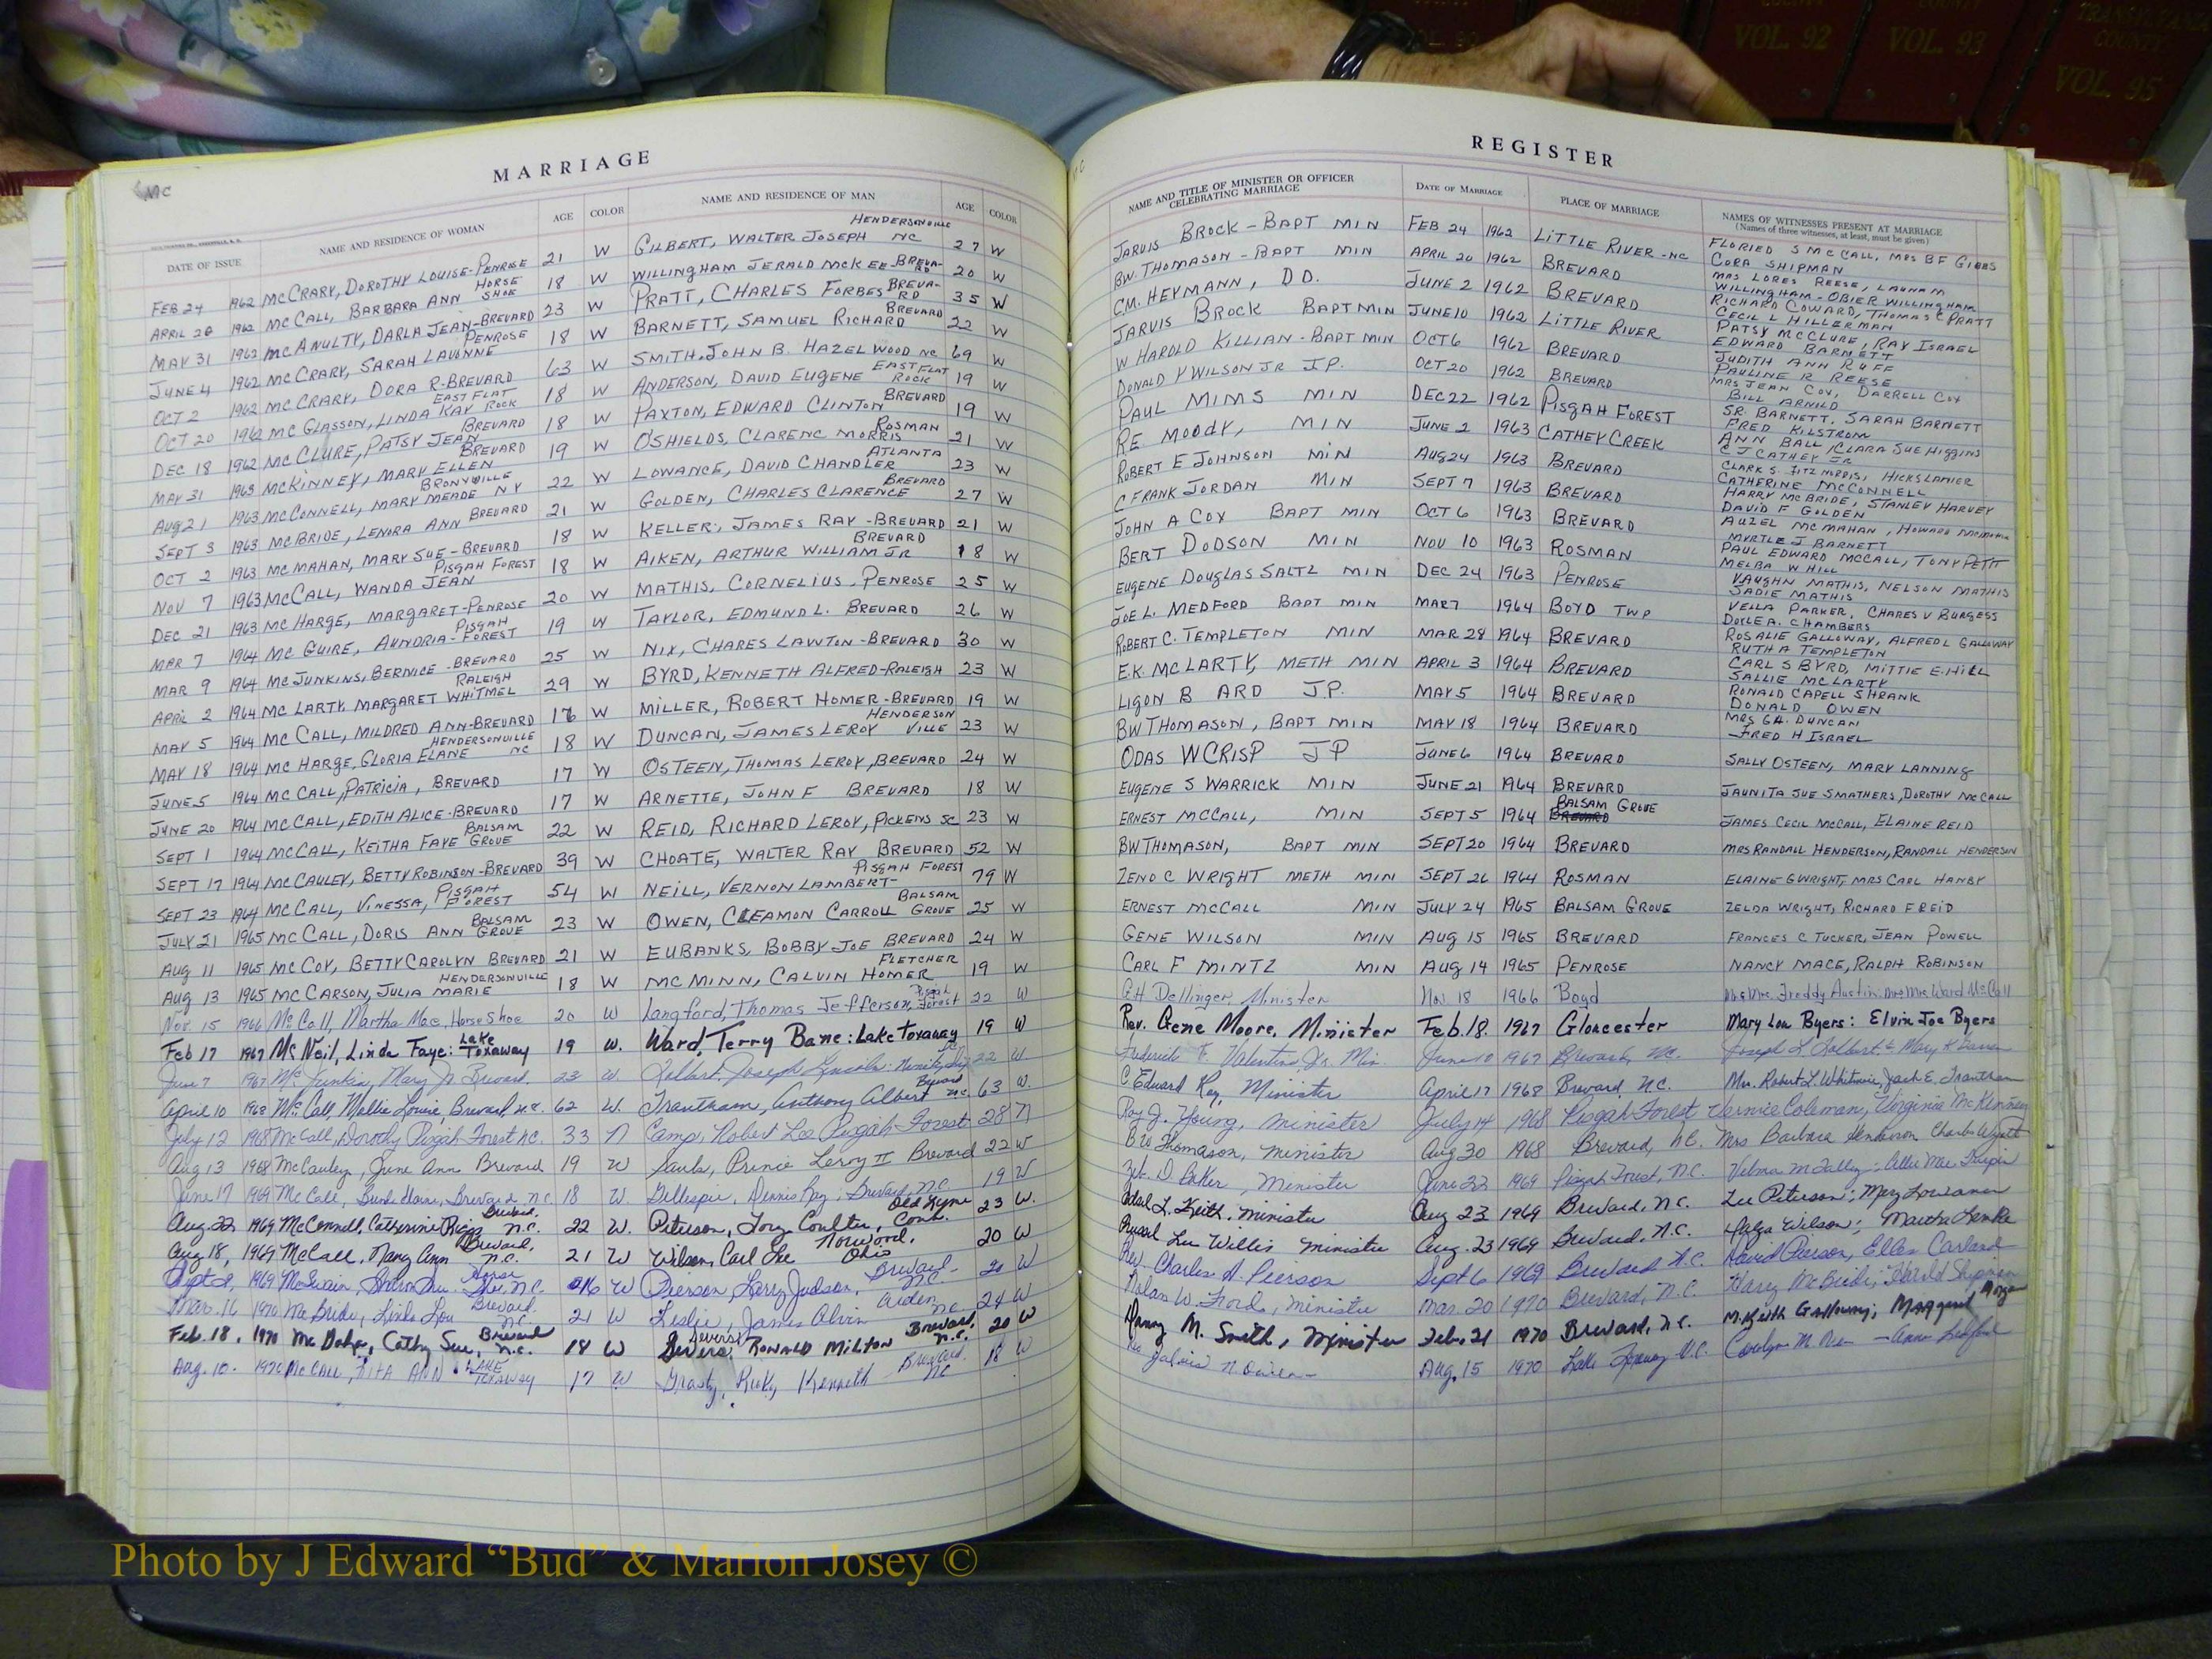 COUNTY VOL. 92
COUNTY VOL. 93
TRANSYLVANIA COUNTY VOL. 95
MARRIAGE
REGISTER
MC
DATE OF ISSUE NAME AND RESIDENCE OF WOMAN AGE COLOR NAME AND RESIDENCE OF MAN AGE COLOR
NAME AND TITLE OF MINISTER OR OFFICER CELEBRATING MARRIAGE DATE OF MARRIAGE PLACE OF MARRIAGE NAMES OF WITNESSES PRESENT AT MARRIAGE (Names of three witnesses, at least, must be given)
FEB 24 1962 MCCRARY, DOROTHY LOUISE-PENROSE 21 W GILBERT, WALTER JOSEPH HENDERSONVILLE NC 27 W JARVIS BROCK-BAPT MIN FEB 24 1962 LITTLE RIVER-NC FLORIED S MCCALL, MRS BF GIBBS CORA SHIPMAN
APRIL 20 1962 MCCALL, BARBARA ANN HORSE SHOE 18 W WILLINGHAM JERALD MCKEE-BREVARD 20 W BW. THOMASON-BAPT MIN APRIL 20 1962 BREVARD MRS LORES REESE, WILLINGHAM-OBIER WILLINGHAM
MAY 31 1962 MCANULTY, DARLA JEAN-BREVARD 23 W PRATT, CHARLES FORBES BREVARD 35 W C.M. HEYMANN, D D. JUNE 2 1962 BREVARD RICHARD COWARD, THOMAS C PRATT CECIL L HILLERMAN
JUNE 4 1962 MCCRARY, SARAH LAVONNE PENROSE 18 W BARNETT, SAMUEL RICHARD BREVARD 22 W JARVIS BROCK BAPT MIN JUNE 10 1962 LITTLE RIVER PATSY MCCLURE, RAY ISRAEL EDWARD BARNETT
OCT 2 1962 MCCRARY, DORA R-BREVARD 63 W SMITH, JOHN B. HAZELWOOD NC 69 W W HAROLD KILLIAN-BAPT MIN OCT 6 1962 BREVARD JUDITH ANN RUFF PAULINE R REESE
OCT 20 1962 MCGLASSON, LINDA KAY EAST FLAT ROCK 18 W ANDERSON, DAVID EUGENE EAST FLAT ROCK 19 W DONALD Y WILSON JR J.P. OCT 20 1962 BREVARD MRS JEAN COX, DARRELL COX BILL ARNOLD
DEC 18 1962 MCCLURE, PATSY JEAN BREVARD 18 W PAXTON, EDWARD CLINTON BREVARD 19 W PAUL MIMS MIN DEC 22 1962 PISGAH FOREST SR. BARNETT, SARAH BARNETT FRED KILSTROM
MAY 31 1963 MCKINNEY, MARY ELLEN BREVARD 19 W O'SHIELDS, CLARENC MORRIS ROSMAN 21 W RE MOODY, MIN JUNE 2 1963 CATHEY CREEK ANN BALL, CLARA SUE HIGGINS C J CATHEY JR
AUG 21 1963 MCCONNELL, MARY MEADE BRONXVILLE NY 22 W LOWANCE, DAVID CHANDLER ATLANTA 23 W ROBERT E JOHNSON MIN AUG 24 1963 BREVARD CLARK S. FITZ MORRIS, HICKS LANIER CATHERINE MCCONNELL
SEPT 3 1963 MCBRIDE, LENORA ANN BREVARD 21 W GOLDEN, CHARLES CLARENCE BREVARD 27 W C FRANK JORDAN MIN SEPT 7 1963 BREVARD HARRY MCBRIDE, STANLEY HARVEY DAVID F GOLDEN
OCT 2 1963 MCMAHAN, MARY SUE-BREVARD 18 W KELLER, JAMES RAY-BREVARD 21 W JOHN A COX BAPT MIN OCT 6 1963 BREVARD AUZEL MCMAHAN, HOWARD MCMAHAN MYRTLE J BARNETT
NOV 7 1963 MCCALL, WANDA JEAN PISGAH FOREST 18 W AIKEN, ARTHUR WILLIAM JR BREVARD 18 W BERT DODSON MIN NOV 10 1963 ROSMAN PAUL EDWARD MCCALL, TONY PETIT MELBA W HILL
DEC 21 1963 MCHARGE, MARGARET-PENROSE 20 W MATHIS, CORNELIUS, PENROSE 25 W EUGENE DOUGLAS SALTZ MIN DEC 24 1963 PENROSE VAUGHN MATHIS, NELSON MATHIS SADIE MATHIS
MAR 7 1964 MCGUIRE, AUNDRIA-PISGAH FOREST 19 W TAYLOR, EDMUND L. BREVARD 26 W JOE L. MEDFORD BAPT MIN MAR 7 1964 BOYD TWP VELLA PARKER, CHARES V BURGESS DOYLE A. CHAMBERS
MAR 9 1964 MCJUNKINS, BERNICE-BREVARD 25 W NIX, CHARES LAWTON-BREVARD 30 W ROBERT C. TEMPLETON MIN MAR 28 1964 BREVARD ROSALIE GALLOWAY, ALFRED L GALLOWAY RUTH A TEMPLETON
APRIL 2 1964 MCLARTY MARGARET WHITMEL RALEIGH 29 W BYRD, KENNETH ALFRED-RALEIGH 23 W E.K. MCLARTY, METH MIN APRIL 3 1964 BREVARD CARL S BYRD, MITTIE E. HILL SALLIE MCLARTY
MAY 5 1964 MCCALL, MILDRED ANN-BREVARD 16 W MILLER, ROBERT HOMER-BREVARD 19 W LIGON B ARD J.P. MAY 5 1964 BREVARD RONALD CAPELL SHRANK DONALD OWEN
MAY 18 1964 MCHARGE, GLORIA ELANE HENDERSONVILLE NC 18 W DUNCAN, JAMES LEROY HENDERSONVILLE 23 W BW THOMASON, BAPT MIN MAY 18 1964 BREVARD MRS GA. DUNCAN FRED H ISRAEL
JUNE 5 1964 MCCALL, PATRICIA, BREVARD 17 W OSTEEN, THOMAS LEROY, BREVARD 24 W ODAS W CRISP JP JUNE 6 1964 BREVARD SALLY OSTEEN, MARY LANNING
JUNE 20 1964 MCCALL, EDITH ALICE-BREVARD 17 W ARNETTE, JOHN F BREVARD 18 W EUGENE S WARRICK MIN JUNE 21 1964 BREVARD JAUNITA SUE SMATHERS, DOROTHY MCCALL
SEPT 1 1964 MCCALL, KEITHA FAYE BALSAM GROVE 22 W REID, RICHARD LEROY, PICKENS SC 23 W ERNEST MCCALL, MIN SEPT 5 1964 BALSAM GROVE BREVARD JAMES CECIL MCCALL, ELAINE REID
SEPT 17 1964 MCCAULEY, BETTY ROBINSON-BREVARD 39 W CHOATE, WALTER RAY BREVARD 52 W BW THOMASON, BAPT MIN SEPT 20 1964 BREVARD MRS RANDALL HENDERSON, RANDALL HENDERSON
SEPT 23 1964 MCCALL, VINESSA, PISGAH FOREST 54 W NEILL, VERNON LAMBERT-PISGAH FOREST 79 W ZENO C WRIGHT METH MIN SEPT 26 1964 ROSMAN ELAINE G WRIGHT, MRS CARL HANBY
JULY 21 1965 MCCALL, DORIS ANN BALSAM GROVE 23 W OWEN, CLEAMON CARROLL BALSAM GROVE 25 W ERNEST MCCALL MIN JULY 24 1965 BALSAM GROVE ZELDA WRIGHT, RICHARD F REID
AUG 11 1965 MCCOY, BETTY CAROLYN BREVARD 21 W EUBANKS, BOBBY JOE BREVARD 24 W GENE WILSON MIN AUG 15 1965 BREVARD FRANCES C TUCKER, JEAN POWELL
AUG 13 1965 MCCARSON, JULIA MARIE HENDERSONVILLE 18 W MCMINN, CALVIN HOMER FLETCHER 19 W CARL F MINTZ MIN AUG 14 1965 PENROSE NANCY MACE, RALPH ROBINSON
Nov. 15 1966 McCall, Martha Mae, Horse Shoe 20 W Langford, Thomas Jefferson, Pisgah Forest 22 W G.H. Dellinger, Minister Nov. 18 1966 Boyd Mr & Mrs. Freddy Austin: Mr & Mrs. Ward McCall
Feb 17 1967 McNeil, Linda Faye: Lake Toxaway 19 W. Ward, Terry Bane: Lake Toxaway 19 W Rev. Gene Moore, Minister Feb. 18. 1967 Gloucester Mary Lou Byers: Elvin Joe Byers
June 7 1967 McJunkin, Mary Jo Brevard. 23 W. Joseph Lincoln: 22 W. Frederick F. Valentine, Jr. Min June 10 1967 Brevard, NC. Joseph L
April 10 1968 McCall, Mollie Louise, Brevard, N.C. 62 W. Trantham, Anthony Albert Brevard NC 63 W. C Edward Ray, Minister April 17 1968 Brevard, N.C. Mrs. Robert L. Whitmire, Jack E. Trantham
July 12 1968 McCall, Dorothy Pisgah Forest NC. 33 N Camp, Robert Lee Pisgah Forest 28 N Roy J. Young, Minister July 14 1968 Pisgah Forest Vernice Coleman, Virginia McKinney
Aug 13 1968 McCauley, June Ann Brevard 19 W Sauls, Prince Leroy II Brevard 22 W BW Thomason, Minister Aug 30 1968 Brevard, NC. Mrs Barbara Henderson Charles Wyatt
June 17 1969 McCall, Brevard, N.C. 18 W. Gillespie, Dennis Ray: Brevard, N.C. 19 W Minister June 22 1969 Pisgah Forest, N.C.
Aug 22 1969 McConnell, Catherine Riggs Brevard, N.C. 22 W. Peterson, Coulter, Old Lyme Conn. 23 W. L. Keith, Minister Aug 23 1969 Brevard, N.C. Lee Peterson; Mary Lowance
Aug 18, 1969 McCall, Mary Ann Brevard, N.C. 21 W Wilson, Carl Lee Norwood, Ohio 20 W Russel Lee Willis Minister Aug. 23 1969 Brevard, N.C. Wilson; Martha
Sept 2, 1969 Horse Shoe, N.C. 16 W Pierson, Larry Judson, Brevard N.C. 20 W Rev Charles A. Pierson Sept 6 1969 Brevard N.C. David Pierson, Ellen Carland
Mar. 16 1970 McBride, Linda Lou Brevard, NC 21 W Leslie, James Alvin Arden NC. 24 W Nolan W. Ford, Minister Mar. 20 1970 Brevard, N.C. Harry McBride, Harold Shipman
Feb. 18, 1970 Cathy Sue, Brevard N.C. 18 W Devers, Ronald Milton Brevard, N.C. 20 W Danny M. Smith, Minister Feb. 21 1970 Brevard, N.C. M. Keith Galloway; Margaret Morgan
Aug. 10. 1970 McCall, RITA ANN. LAKE TOXAWAY 17 W Grasty, Ricky Kenneth Brevard NC 18 W Aug. 15 1970 Lake Toxaway N.C. Carolyn M. Owen - Anna Ledford
Photo by J Edward “Bud” & Marion Josey ©